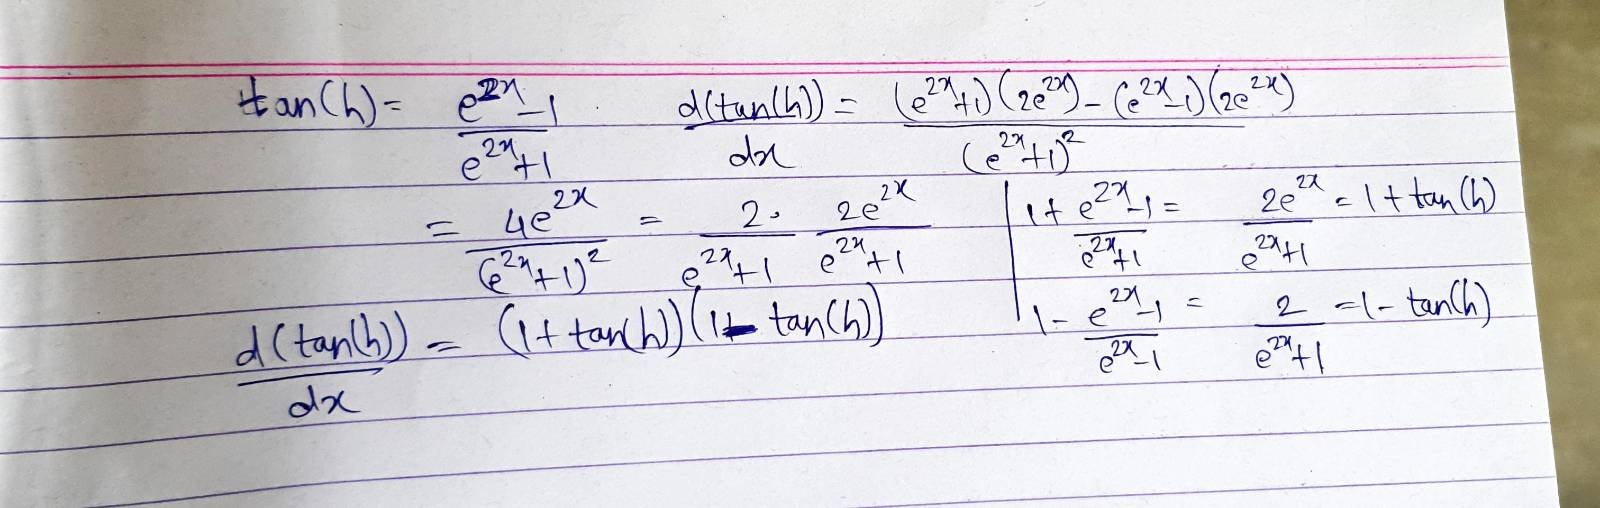 tan(h) = (e^{2x} - 1)/(e^{2x} + 1)    d(tan(h))/dx = ((e^{2x}+1)(2e^{2x}) - (e^{2x}-1)(2e^{2x}))/(e^{2x}+1)^2
= 4e^{2x}/(e^{2x}+1)^2 = 2/(e^{2x}+1) · 2e^{2x}/(e^{2x}+1)    | 1 + (e^{2x}-1)/(e^{2x}+1) = 2e^{2x}/(e^{2x}+1) = 1 + tan(h)
d(tan(h))/dx = (1 + tan(h))(1 - tan(h))    | 1 - (e^{2x}-1)/(e^{2x}-1) = 2/(e^{2x}+1) = 1 - tan(h)